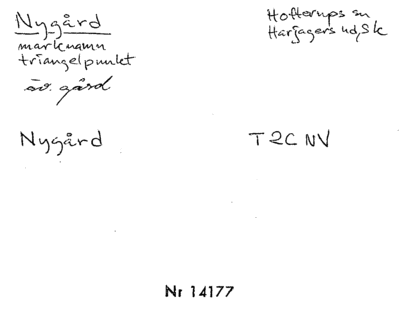 Nygård
marknamn
triangelpunkt
äv. gård
Hofterups sn
Harjagers hd, Sk
Nygård
T 2C NV
Nr 14177